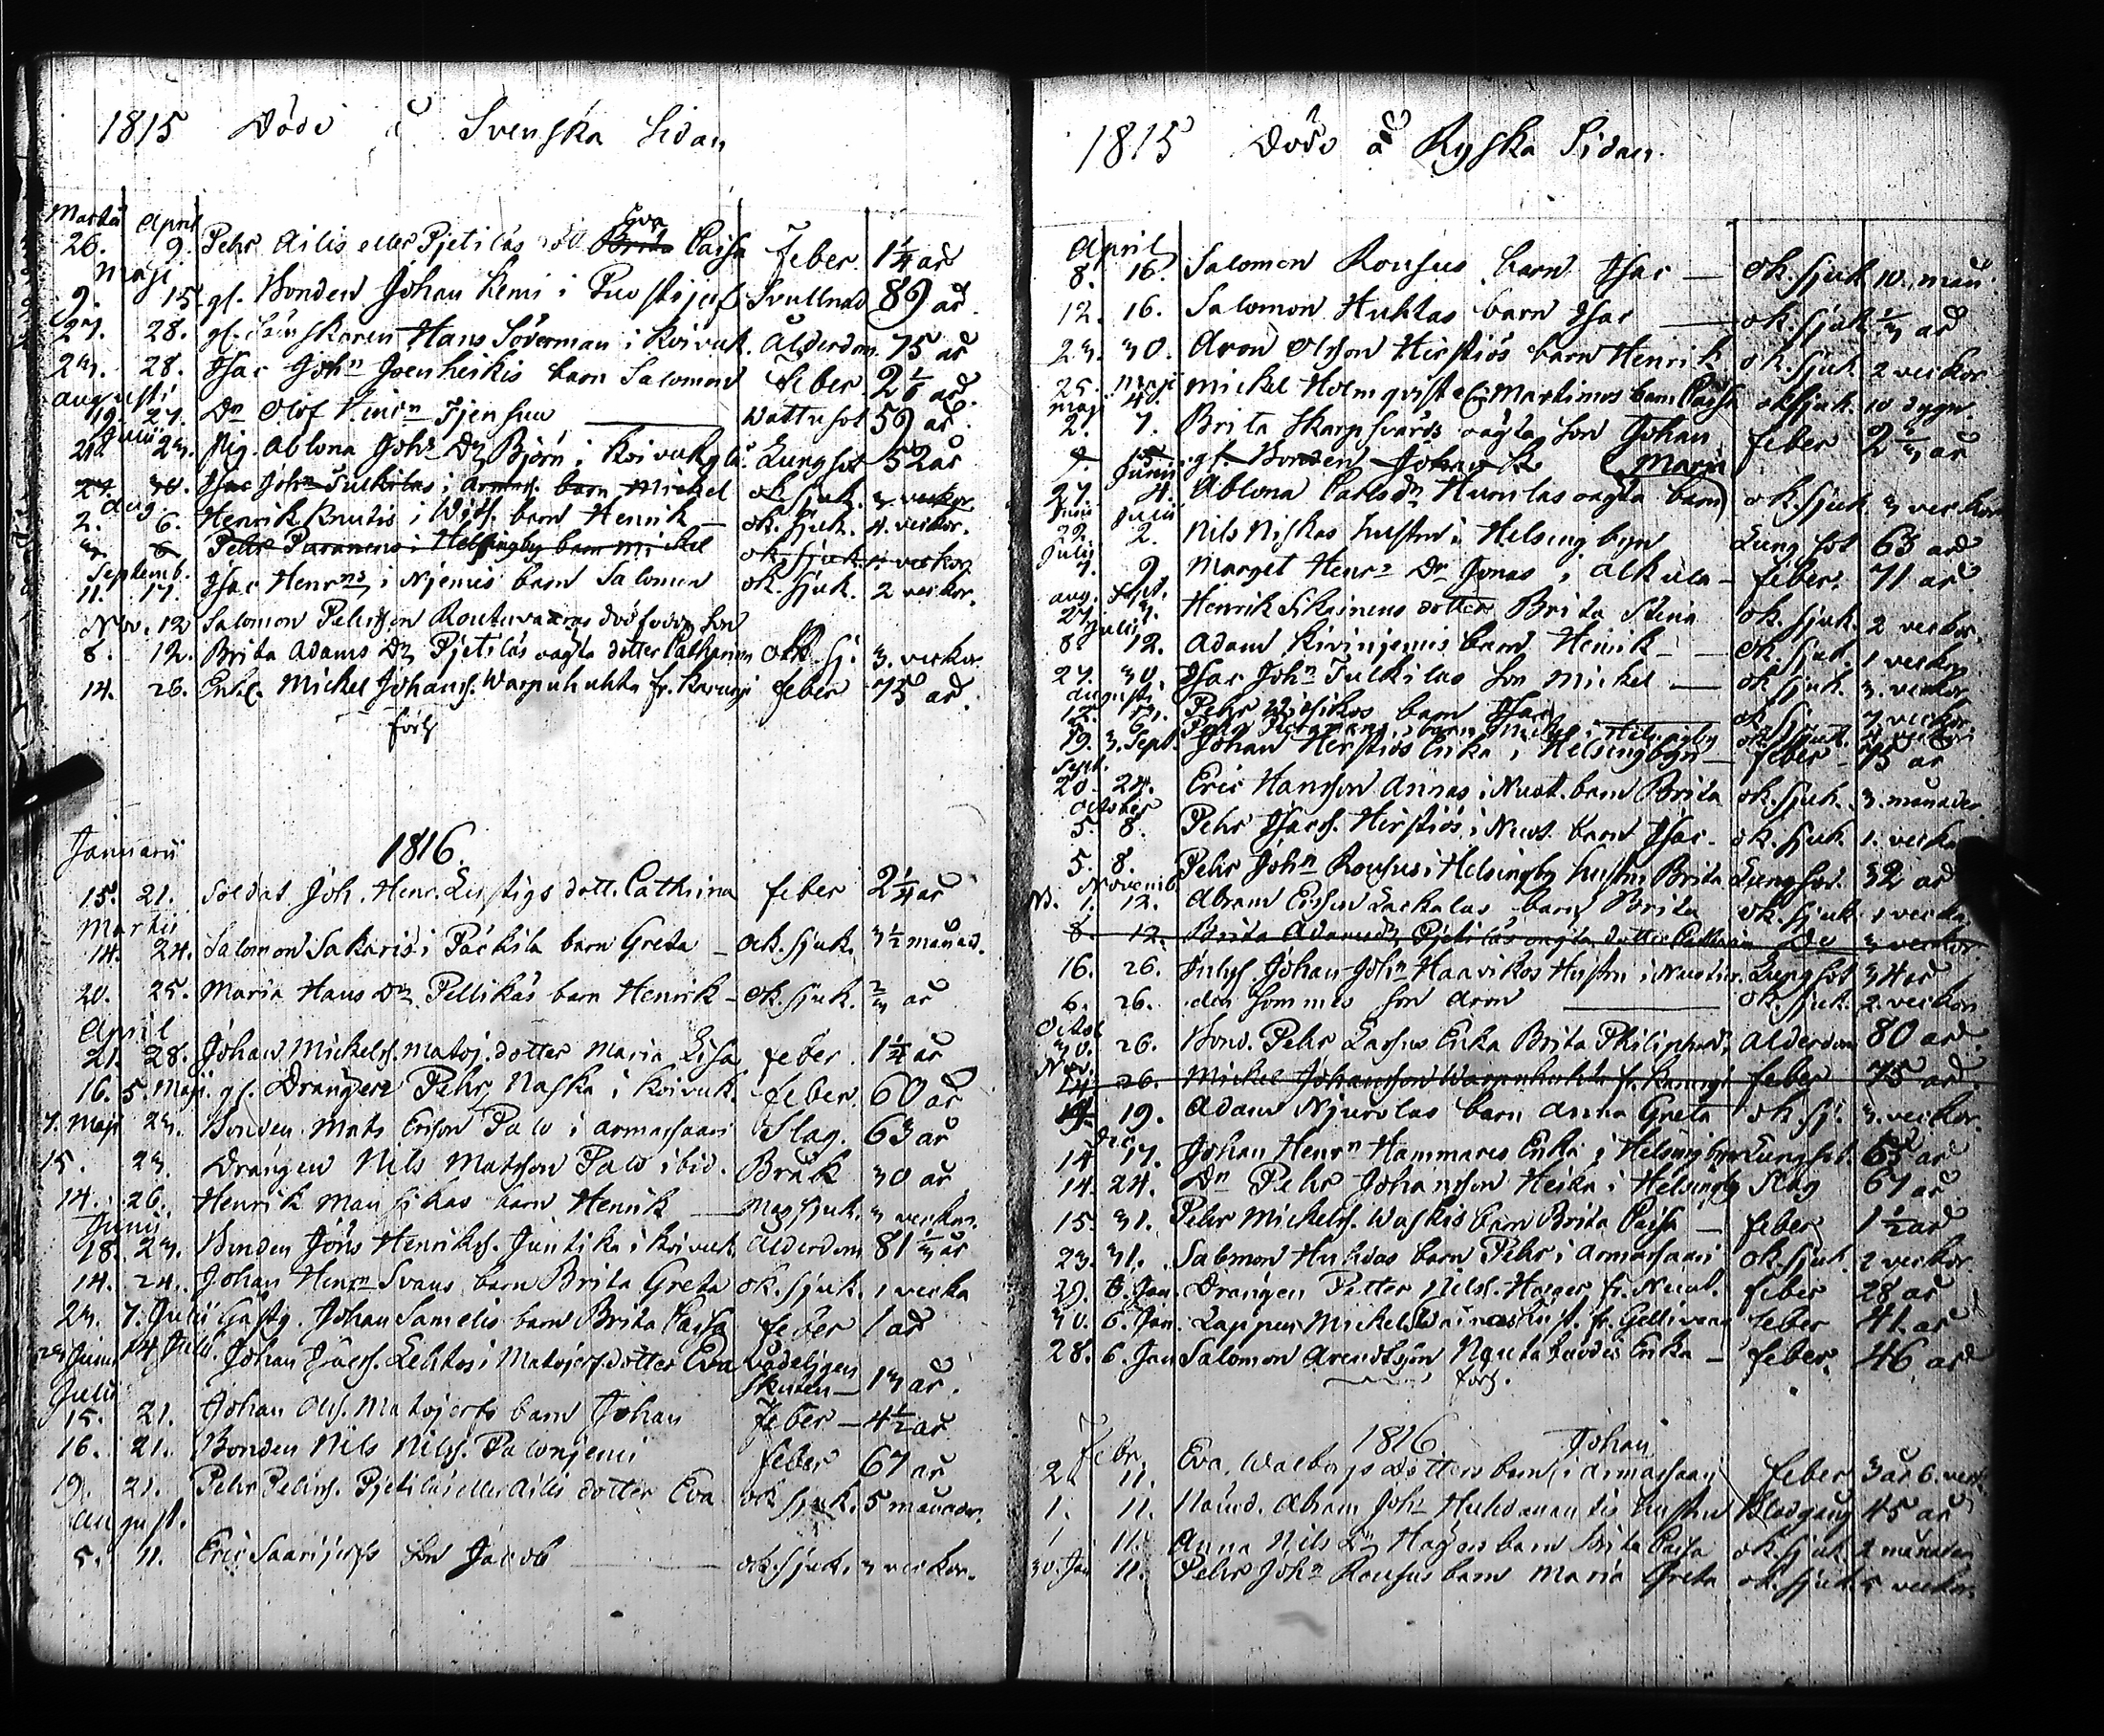 1815 Döde å Svenska Sidan
Martii April
26. 9. Pehr Ailis eller Pjetiläs Eva Brita Caisa feber 1 1/4 år
Maji
9. 15. gl. Bonden Johan Kemi i Svullnad 89 år.
27. 28. gl. Hans Söderman i Koivuk. Ålderdom 75 år
23. 28. Isac Johⁿ barn Salomon feber 2 1/6 år.
Augusti
19. 27. Dn Olof Henrn Wattusot 59 år.
Julii
21. 23. Pig. Ablona Johs Dr Björn i Koivukylä Lungsot 52 år
27. 30. Isac Johⁿ Tulkilas i Armas. barn Mickel ok. sjuk. 3 veckor
Aug
2. 6. Henrik Knutis i Wits. barn Henrik — ok. sjuk. 4. veckor.
6 Pehr Puranens i Helsingby barn Mickel ok. sjuk. veckor
Septemb.
11. 17. Isac Henrns i Njemis barn Salomon ok. sjuk. 2 veckor.
Nov. 12 Salomon Pehrsson Rautuvaaras dödfödd son
8. 12. Brita Adams Dr Pjetiläs oägta dotter Catharina ok. sj. 3. veckor
14. 26. Enkl. Mickel Johans. Warpuhuhta fr. Karungi feber 75 år.
förts
1816.
Januarii
15. 21. Soldat Joh. Henr. Lustigs dott. Cathrina feber 2 1/4 år
Martii
14. 24. Salomon Sakaris i Päckila barn Greta — ok. sjuk. 3 1/2 månad.
20. 25. Maria Hans Dr Pellikäs barn Henrik — ok. sjuk. 2/3 år
April
21. 28. Johan Mickels. Matoj. dotter Maria Lisa feber 1 1/4 år
16. 5. Maji. gl. Drängen Pehr Naska i Koivuk. feber. 60 år
7. Maji 23. Bonden Mats Ersson Palo i Armassaari Slag. 63 år
15. 23. Drängen Nils Matsson Palo ibid. Bråk 30 år
14. 26. Henrik Mansikas barn Henrik — Magsjuk. 3 veckor.
Junii
18. 23. Bonden Jöns Henriks. Juntika i Koivuk. Ålderdom 81 1/3 år
14. 24. Johan Henrn Svans barn Brita Greta ok. sjuk. 1 vecka
23. 7. Julii Gästg. Johan Samelis barn Brita Caisa feber 1 år
23 Junii 14 Julii. Johan Isacs. Lehtos i Matojerf. dotter Eva Vådeligen skuten — 13 år.
Julii
15. 21. Johan Ols. Matojerfs barn Johan feber — 4 1/2 år
16. 21. Bonden Nils Nils. Palonjemi feber 67 år
19. 21. Pehr Pehrs. Pjetiläs eller Ailis dotter Eva ok sjuk. 5 månader.
August.
5. 11. Eric Saarijerfs son Jacob — ok. sjuk. 3 veckor.
1815 Döde å Ryska Sidan.
April
8. 16. Salomon Rousus barn Isac — ok. sjuk 10. mån.
12. 16. Salomon Huhtas barn Isac — ok. sjuk 1/3 år
23. 30. Aron Olsson Hirstiös barn Henrik ok. sjuk. 2 veckor
25. Maji Mickel Holmqvist el. Martimos barn Caisa ok sjuk. 10 dygn.
Maji
2. 7. Brita Skarpsvärds oägta son Johan feber 2 2/3 år
9. 15. gl. Bonden Johan K Maria
Junii
27. 4. Ablona Carls dn Hurulas oägta barn ok. sjuk 3 veckor
Junii Julii
22. 2. Nils Niskas hustru i Helsingbyn Lungsot 63 år
Julij
7. 9. Marget Henrs Dr Jonas i Alkula — feber. 71 år
Aug. Sept.
27 3. Henrik Sikainens dotter Brita Stina ok. sjuk. 2 veckor.
Julii
8 12. Adam Kivinjemis barn Henrik — ok sjuk. 1 veckor
27. 30. Isac Johⁿ Tulkilas son Mickel — ok sjuk. 3. veckor
Augusti
12. 13. Pehr barn Isac — ok sj. 3 veckor
6 Pehr barn Mickel i Helsingby ok sjuk. 4 veckor
19. 3. Sept. Johan Hirstiös Enka i Helsingbyn — feber — 75 år
Sept.
20. 24. Eric Hansson Annas i Kust. barn Brita ok. sjuk. 3. månader
October
5. 8. Pehr Isacs. Hirstiös i barn Isac. ok. sjuk. 1. vecka
5. 8. Pehr Johⁿ Rousus i Helsingby hustru Brita Lungsot. 32 år
Novemb
1. 12. Abram Erssen Lackalas barn Brita ok. sjuk 1 vecka
8. 12. Brita Adams dr Pjetiläs oägta dotter Catharina Do 3 veckor.
16. 26. Inhys. Johan Johⁿ Haavikos Hustru i Lungsot 34 år
6. 26. den sammes son Aron — ok. sjuk. 2. veckor
Octob
30. 26. Bond. Pehr Lassus Enka Brita Philipsdr. Ålderdom 80 år.
Nov.
14 26. Mickel Johansson Warpuhuhta fr. Karungi feber 75 år.
19. Adam Njurolas barn Anna Greta ok. sj. 3. veckor.
Dec
14 17. Johan Henrn Hammares Enka i Helsingbyn Lungsot. 65 år
14. 24. Dn Pehr Johansson Heikka i Helsingby Slag 67 år
15. 31. Pehr Mickels. Waskis barn Brita Caisa — feber 1 1/2 år
23. 31. Salomon Huhdas barn Pehr i Armassaari ok sjuk. 2 veckor
29. 6. Jan. Drängen Petter Nils. Hager fr. feber 28 år
30. 6. Jan. Lappen Mickel fr. Gellivara feber 41. år
28. 6. Jan Salomon Arendtsson Nautahuodis Enka — feber. 46 år
förts.
1816 Johan
Febr.
2. 11. Eva Walbergs Dotters barn i Armassaari feber 3 år 6. veck.
1. 11. Nämd. Abram Johs hustru Blodgång 45 år
11. Anna Nils Dr Hagers barn Brita Caisa ok. sjuk 2 månader
30. Jan 11. Pehr Johⁿ Rousus barn Maria Greta ok. sjuk 5 veckor.